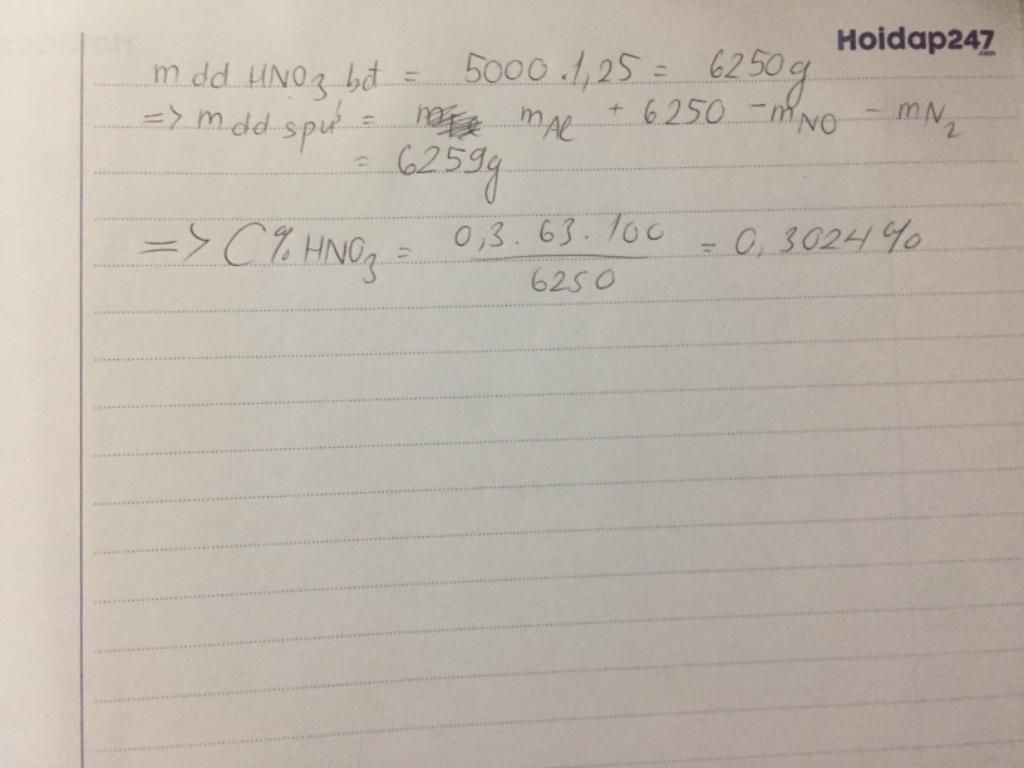 Hoidap247
m dd HNO₃ bđ = 5000.1,25 = 6250g
=> m dd spứ = m Al + 6250 - m NO - m N₂
= 6259g
=> C% HNO₃ = 0,3.63.100 / 6250 = 0,3024%